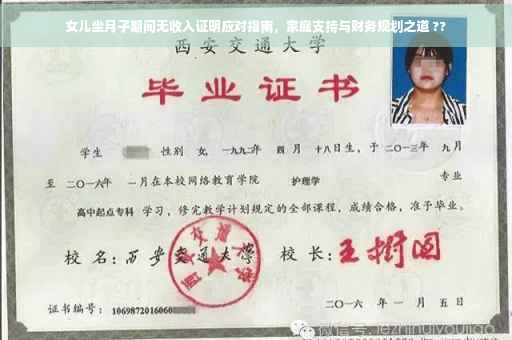 女儿坐月子期间无收入证明应对指南，家庭支持与财务规划之道 ??
西安交通大学
毕业证书
学生 性别 女，一九九二年 四月 十八日生，于二〇一三年 九月
至 二〇一六年 一月在本校网络教育学院 护理学 专业
高中起点专科 学习，修完教学计划规定的全部课程，成绩合格，准予毕业。
校 名：西安交通大学 校 长：王树国
西安交通大学
证书编号：1069872016060
二〇一六 年 一 月 五 日
微信号: jezhihuiyoujiao